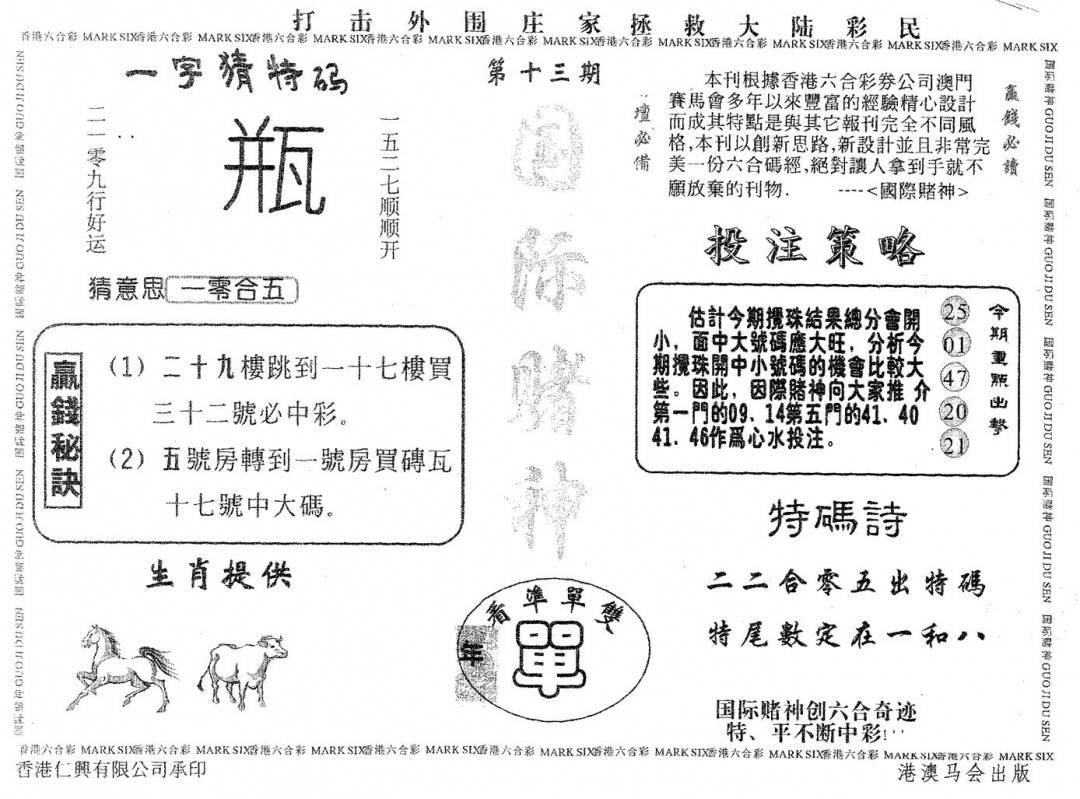 打击外围庄家拯救大陆彩民
香港六合彩 MARK SIX香港六合彩 MARK SIX香港六合彩 MARK SIX香港六合彩 MARK SIX香港六合彩 MARK SIX香港六合彩 MARK SIX香港六合彩 MARK SIX香港六合彩 MARK SIX香港六合彩 MARK SIX
一字猜特码
二一零九行好运
瓶
一五二七顺顺开
猜意思 一零合五
赢錢秘訣
(1) 二十九樓跳到一十七樓買
三十二號必中彩。
(2) 五號房轉到一號房買磚瓦
十七號中大碼。
生肖提供
第十三期
国际赌神
看準單雙
年
單
壇必備
本刊根據香港六合彩券公司澳門
賽馬會多年以來豐富的經驗精心設計
而成其特點是與其它報刊完全不同風
格,本刊以創新思路,新設計並且非常完
美一份六合碼經,絕對讓人拿到手就不
願放棄的刊物. ----<國際賭神>
贏錢必讀
投注策略
估計今期攪珠結果總分會開
小，面中大號碼應大旺，分析今
期攪珠開中小號碼的機會比較大
些。因此，因際賭神向大家推 介
第一門的09、14第五門的41、40
41、46作爲心水投注。
25
01
47
20
21
今期重點出擊
特碼詩
二二合零五出特碼
特尾數定在一和八
国际赌神创六合奇迹
特、平不断中彩!
国际赌神 GUO JI DU SEN 国际赌神 GUO JI DU SEN 国际赌神 GUO JI DU SEN 国际赌神 GUO JI DU SEN 国际赌神 GUO JI DU SEN
香港六合彩 MARK SIX香港六合彩 MARK SIX香港六合彩 MARK SIX香港六合彩 MARK SIX香港六合彩 MARK SIX香港六合彩 MARK SIX香港六合彩 MARK SIX香港六合彩 MARK SIX香港六合彩 MARK SIX
香港仁興有限公司承印
港澳马会出版